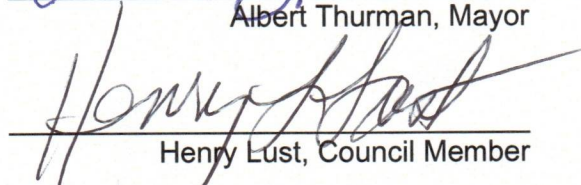 Albert Thurman, Mayor
Henry Lust
Henry Lust, Council Member